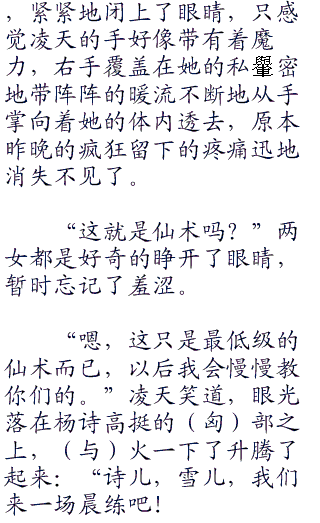 ，紧紧地闭上了眼睛，只感
觉凌天的手好像带有着魔
力，右手覆盖在她的私密
地带阵阵的暖流不断地从手
掌向着她的体内透去，原本
昨晚的疯狂留下的疼痛迅地
消失不见了。
“这就是仙术吗？”两
女都是好奇的睁开了眼睛，
暂时忘记了羞涩。
“嗯，这只是最低级的
仙术而已，以后我会慢慢教
你们的。”凌天笑道，眼光
落在杨诗高挺的（匈）部之
上，（与）火一下了升腾了
起来：“诗儿，雪儿，我们
来一场晨练吧！